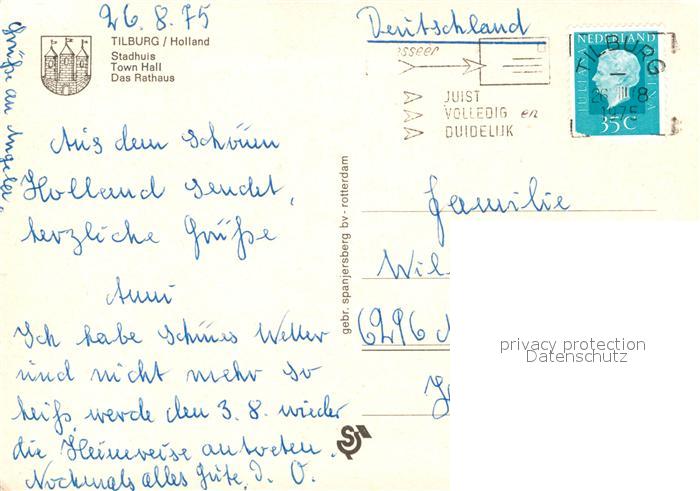 26.8.75
Grüße an Angela.
TILBURG / Holland
Stadhuis
Town Hall
Das Rathaus
Aus dem Schönen
Holland sendet,
herzliche Grüße
Anni
Ich habe schönes Wetter
und nicht mehr so
heiß, werde den 3.8. wieder
die Heimreise antreten.
Nochmals alles Gute, d. O.
gebr. spanjersberg bv - rotterdam
Deutschland
JUIST
VOLLEDIG en
DUIDELIJK
NEDERLAND
JULIANA REGINA
35C
TILBURG
1975
Familie
Wil
6296
privacy protection
Datenschutz